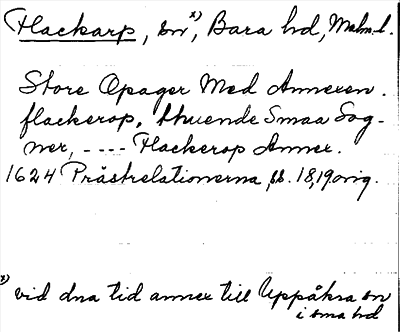 Flackarp, sn x), Bara hd, Malm.l.
Store Opager Med Annexen.
flackerop, thuende Smaa Sog-
ner, ---- Flackerop Annex.
1624 Prästrelationerna, bl. 18, 19 orig.
x) vid dna tid annex till Uppåkra sn
i sma hd